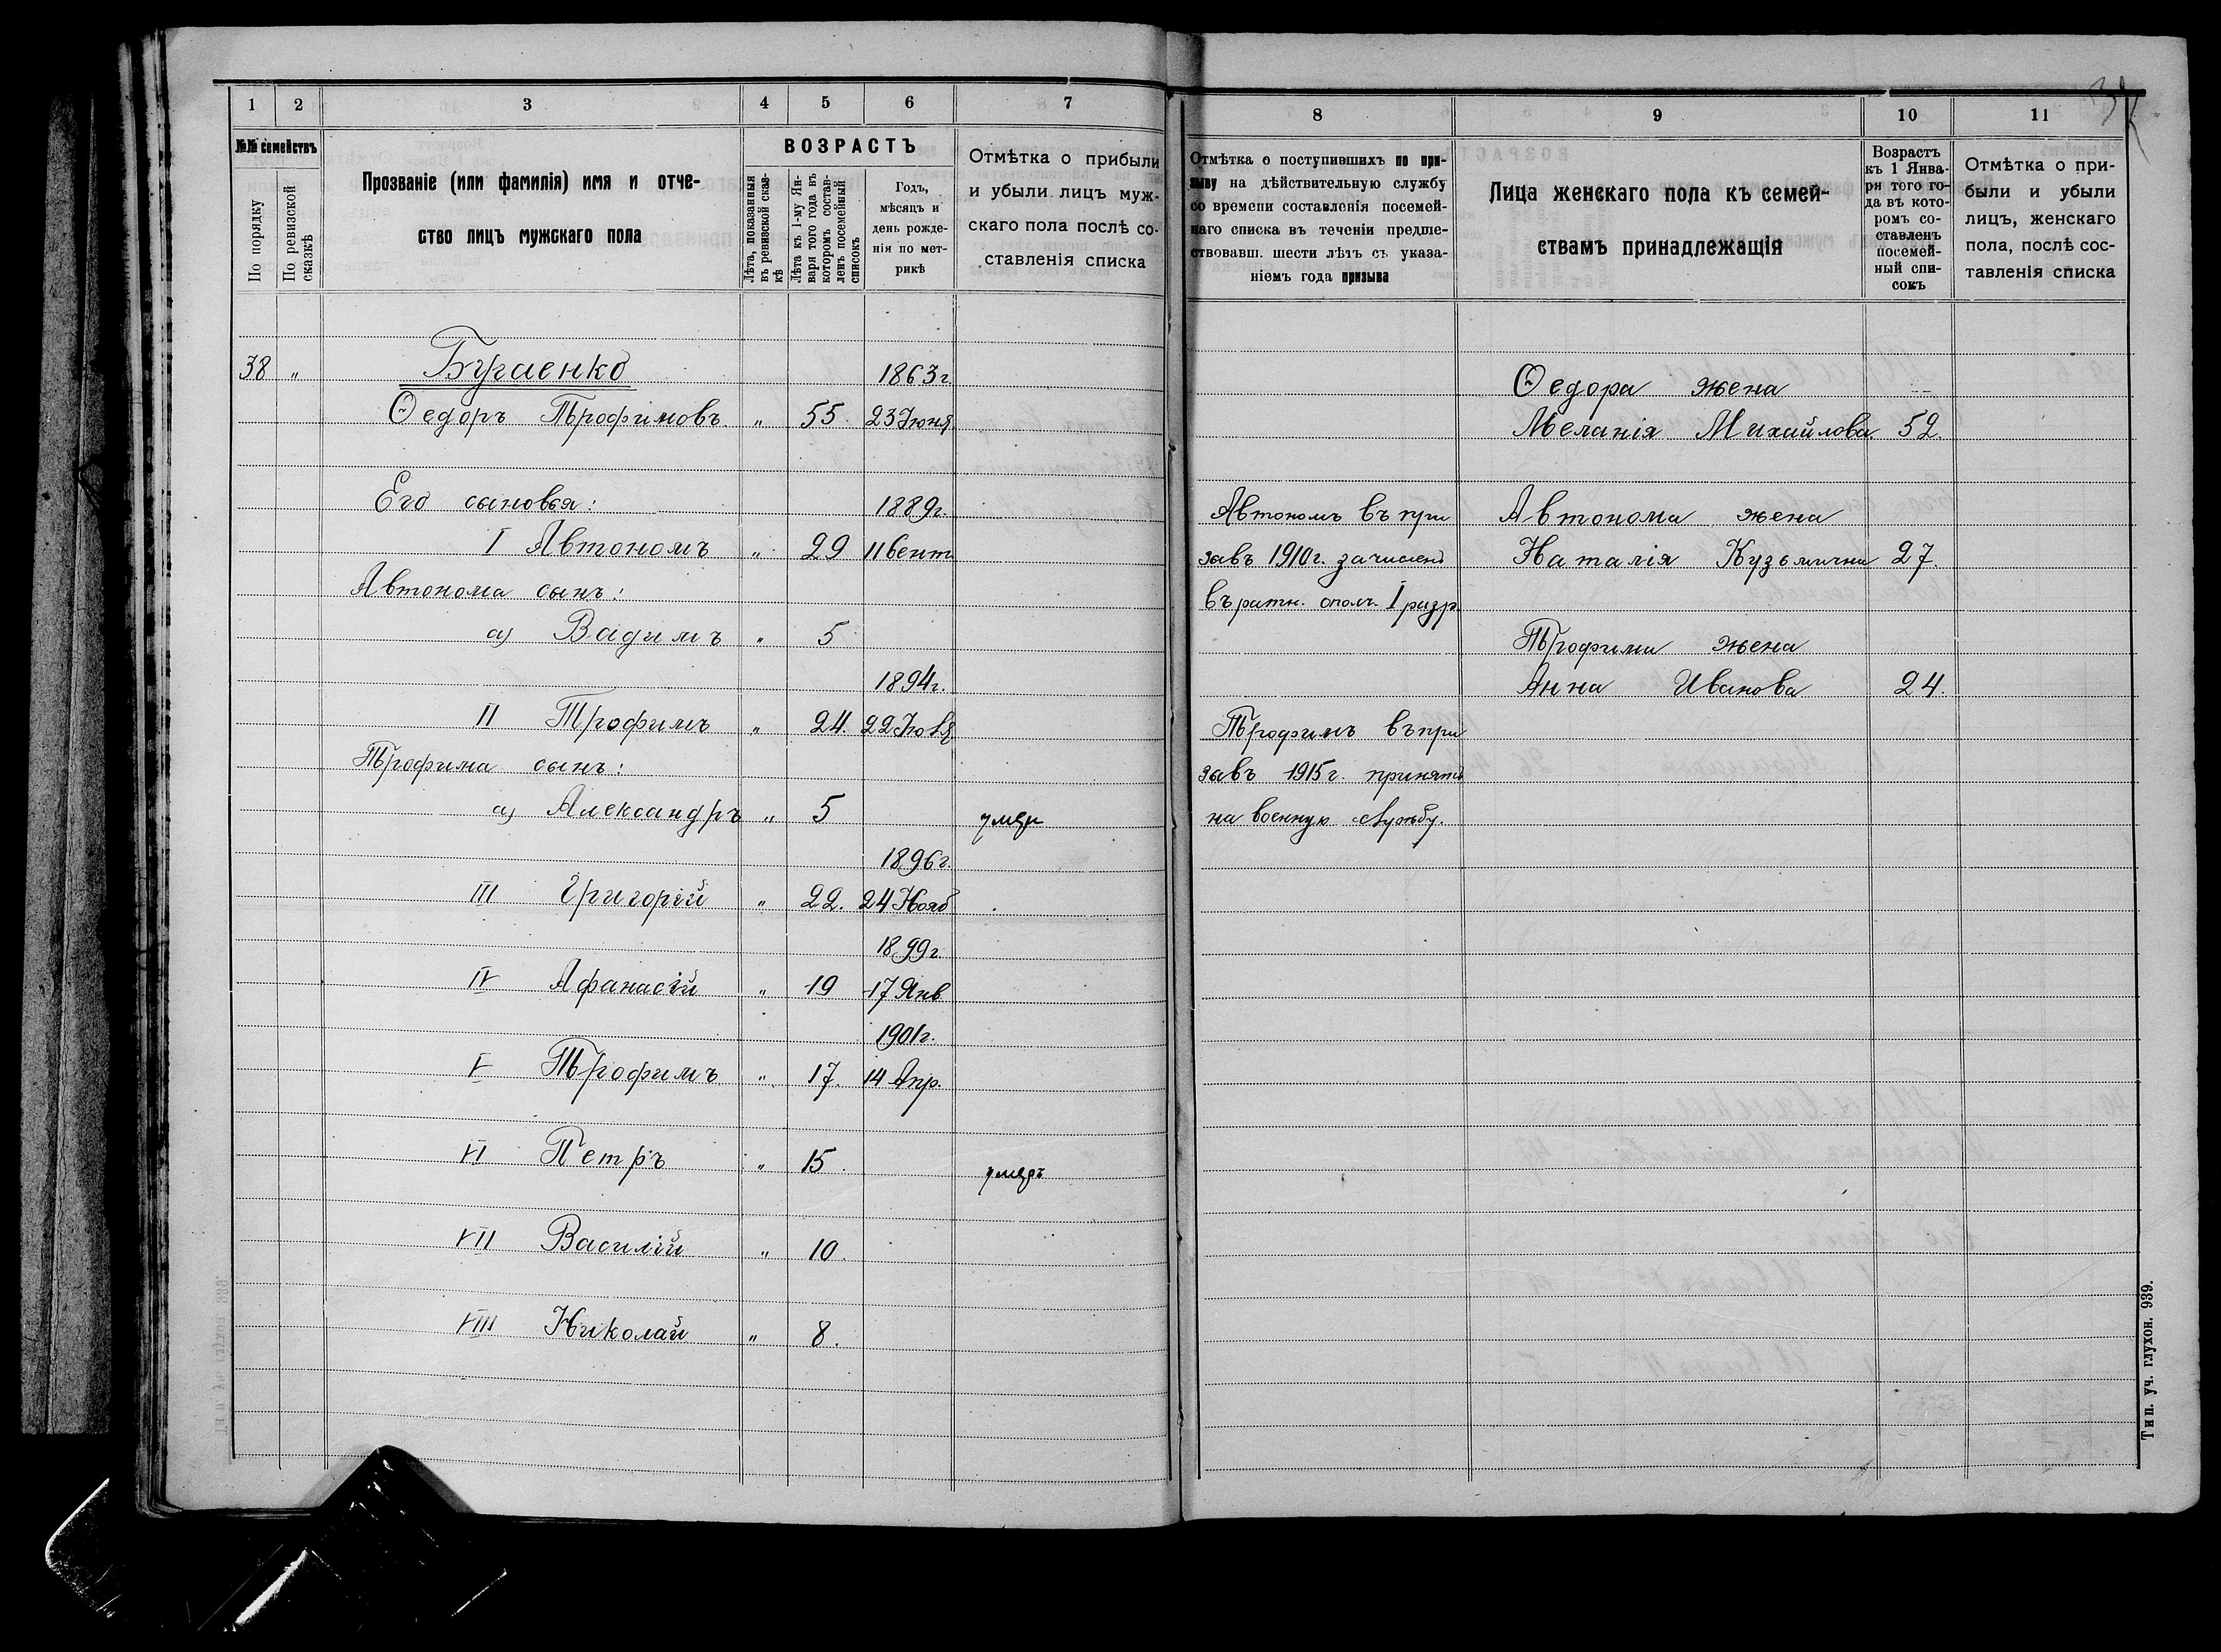 1 2 3 4 5 6 7
№№ семействъ
По порядку
По ревизской сказкѣ
Прозваніе (или фамилія) имя и отче-
ство лицъ мужскаго пола
ВОЗРАСТЪ
Лѣта, показанныя
въ ревизской сказ-
кѣ
Лѣта къ 1-му Ян-
варя того года въ
которомъ состав-
ленъ посемейный
списокъ
Годъ,
мѣсяцъ и
день рожде-
нія по мет-
рикѣ
Отмѣтка о прибыли
и убыли лицъ муж-
скаго пола послѣ со-
ставленія списка
38 „ Бугаенко 1863г.
Ѳедоръ Трофимовъ „ 55 23 Іюня
Его сыновья: 1889г.
I Автономъ „ 29 11 Сент
Автонома сынъ:
а) Вадимъ „ 5
1894г.
II Трофимъ „ 24. 22
Трофима сынъ:
а) Александръ „ 5 умер
1896г.
III Григорій „ 22. 24 Нояб
1899г.
IV Афанасій „ 19 17 Янв
1901г.
V Трофимъ „ 17. 14 Апр.
VI Петръ „ 15. умеръ
VII Василій „ 10.
VIII Николай „ 8.
8 9 10 11
Отмѣтка о поступившихъ по при-
зыву на дѣйствительную службу
со времени составленія посемей-
наго списка въ теченіи предше-
ствовавш. шести лѣтъ съ указа-
ніемъ года призыва
Лица женскаго пола къ семей-
ствамъ принадлежащія
Возрастъ
къ 1 Янва-
ря того го-
да въ кото-
ромъ со-
ставленъ
посемей-
ный спи-
сокъ
Отмѣтка о при-
были и убыли
лицъ, женскаго
пола, послѣ сос-
тавленія списка
Ѳедора жена
Меланія Михайлова. 52.
Автономъ въ при Автонома жена
зывъ 1910г. зачислен Наталія Кузьмична 27.
въ ратн. ополч. I разр.
Трофима жена
Анна Иванова 24.
Трофимъ въ при
зывъ 1915г. принятъ
на военную службу.
Тип. уч. глухон. 939.